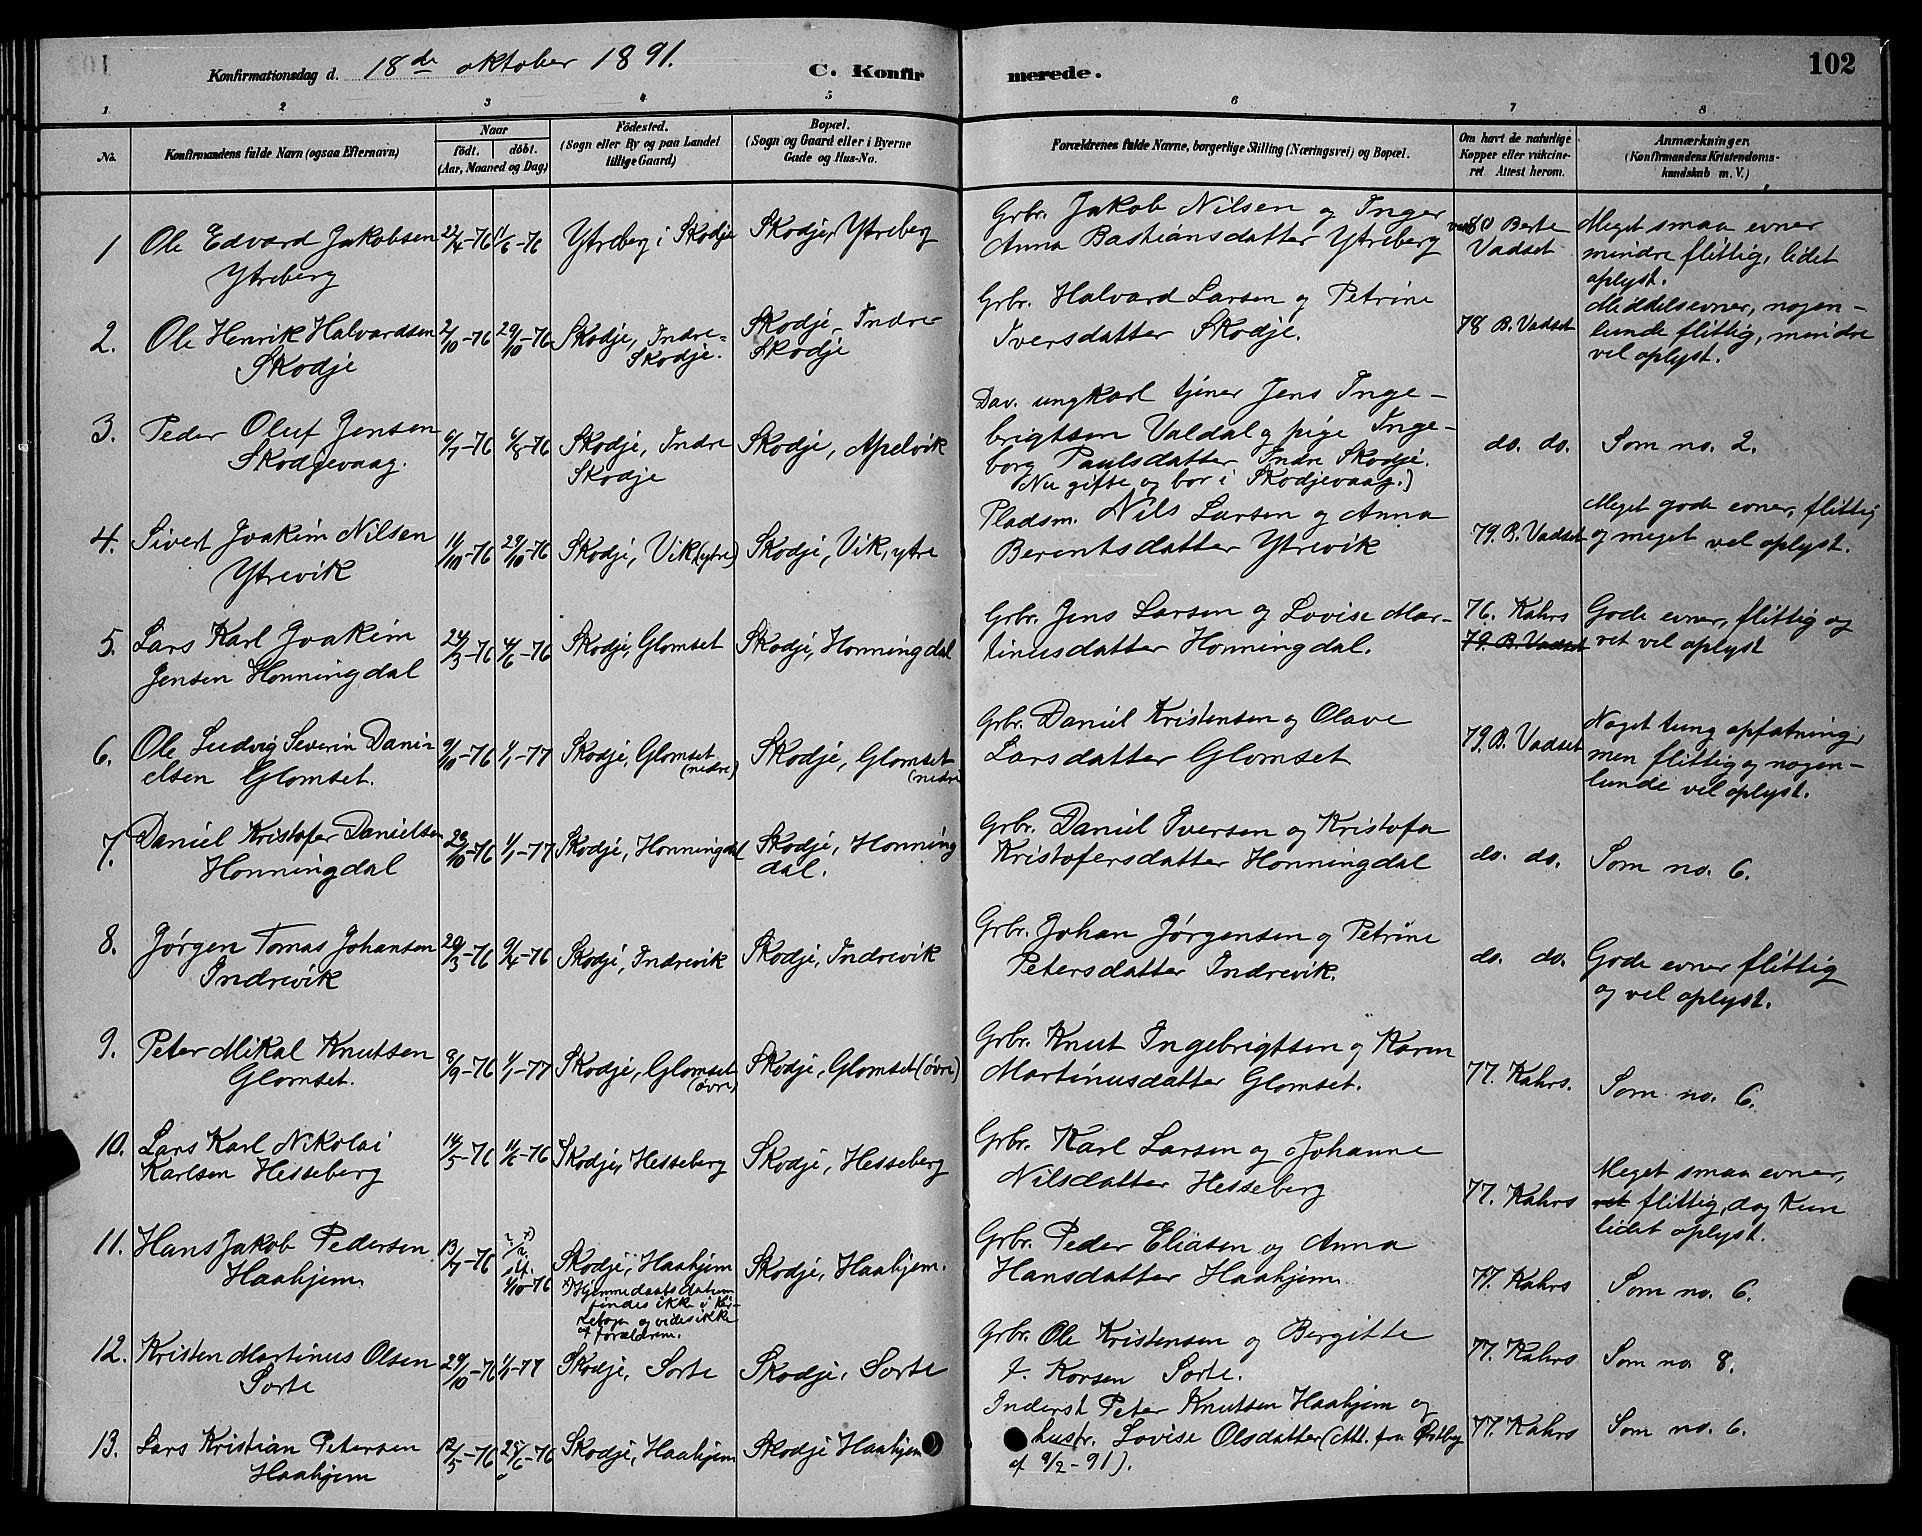 Konfirmationsdag d. 18de oktober 1891. C. Konfirmerede. 102
1 2 3 4 5 6 7 8
No. Konfirmandens fulde Navn (ogsaa Efternavn) Naar født. døbt. (Aar, Maaned og Dag) Fødested. (Sogn eller By og paa Landet tillige Gaard) Bopæl. (Sogn og Gaard eller i Byerne Gade og Hus-No. Forældrenes fulde Navne, borgerlige Stilling (Næringsvei) og Bopæl. Om havt de naturlige Kopper eller vakcineret. Attest herom. Anmærkninger. (Konfirmandens Kristendomskundskab m. V.)
1 Ole Edvard Jakobsen Ytreberg 22/4-76 11/6-76 Ytreberg i Skodje Skodje, Ytreberg Grbr. Jakob Nilsen og Inger Anna Bastiansdatter Ytreberg 80 Berte Vadset Meget smaa evner mindre flittig, lidet oplyst.
2. Ole Henrik Halvardsen Skodje 2/10-76 29/10-76 Skodje, Indre-Skodje. Skodje, Indre Skodje Grbr. Halvard Larsen og Petrine Iversdatter Skodje. 78 B. Vadset Middelsevner, nogenlunde flittig, mindre vel oplyst.
3. Peder Oluf Jensen Skodjevaag. 6/7-76 6/8-76 Skodje, Indre Skodje Skodje, Apelvik Dav. ungkarl tjener Jens Ingebrigtsen Valdal og pige Ingeborg Paulsdatter Indre Skodje. (Nu gifte og bor i Skodjevaag.) do. do. Som no. 2.
4. Sivert Joakim Nilsen Ytrevik 11/10-76 29/10-76 Skodje, Vik (ytre) Skodje, Vik, ytre Pladsm. Nils Larsen og Anna Berentsdatter Ytrevik 79. B. Vadset Meget gode evner, flittig og meget vel oplyst.
5. Lars Karl Joakim Jensen Honningdal 24/3-76 4/6-76 Skodje, Glomset Skodje, Honningdal Grbr. Jens Larsen og Lovise Martinusdatter Honningdal. 76. Kahrs 79. B. Vadset Gode evner, flittig og ret vel oplyst
6. Ole Ludvig Severin Danielsen Glomset. 9/10-76 1/1-77 Skodje, Glomset (nedre) Skodje, Glomset (nedre Grbr. Daniel Kristensen og Olave Larsdatter Glomset 79. B. Vadset Noget tung opfatning, men flittig og nogenlunde vel oplyst.
7. Daniel Kristofer Danielsen Honningdal 23/10-76 1/1-77 Skodje, Honningdal Skodje, Honningdal. Grbr. Daniel Iversen og Kristofa Kristofersdatter Honningdal do. do. Som no. 6.
8. Jørgen Tomas Johansen Indrevik 20/3-76 9/4-76 Skodje, Indrevik Skodje, Indrevik Grbr. Johan Jørgensen og Petrine Petersdatter Indrevik. do. do. Gode evner flittig og vel oplyst.
9. Peter Mikal Knutsen Glomset. 8/9-76 1/1-77 Skodje, Glomset (øvre) Skodje, Glomset (øvre) Grbr. Knut Ingebrigtsen og Karen Martinusdatter Glomset. 77. Kahrs. Som no. 6.
10. Lars Karl Nikolai Karlsen Hesseberg 14/5-76 11/6-76 Skodje, Hesseberg Skodje, Hesseberg Grbr. Karl Larsen og Johanne Nilsdatter Hesseberg 77. Kahrs Meget smaa evner, ret flittig, dog kun lidet oplyst.
11. Hans Jakob Pedersen Haahjem 13/7-76 1/10-76 Skodje, Haahjem Hjemmedaabs datum findes ikke i kirkebogen og vides ikke af forældrene. Skodje, Haahjem. Grbr. Peder Eliasen og Anna Hansdatter Haahjem 77. Kahrs Som no. 6.
12. Kristen Martinus Olsen Sorte 29/10-76 1/1-77 Skodje, Sorte Skodje, Sorte Grbr. Ole Kristensen og Bergitte f. Korsen Sorte. 77. Kahrs Som no. 8.
13. Lars Kristian Petersen Haahjem 12/5-76 25/6-76 Skodje, Haahjem Skodje Haahjem Inderst Peter Knutsen Haahjem og hustr. Lovise Olsdatter (Att. fra Ørstby af 9/2-91). 77. Kahrs Som no. 6.